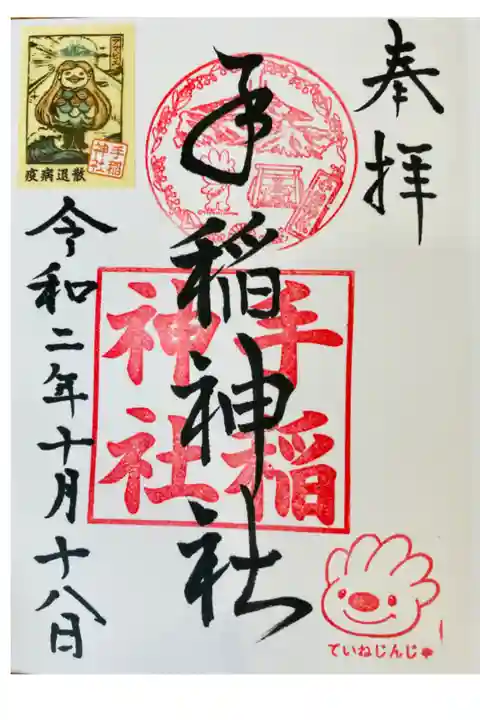 奉拝
手稲神社
手稲神社
令和二年十月十八日
アマビエ
手稲神社
疫病退散
ていねじんじゃ